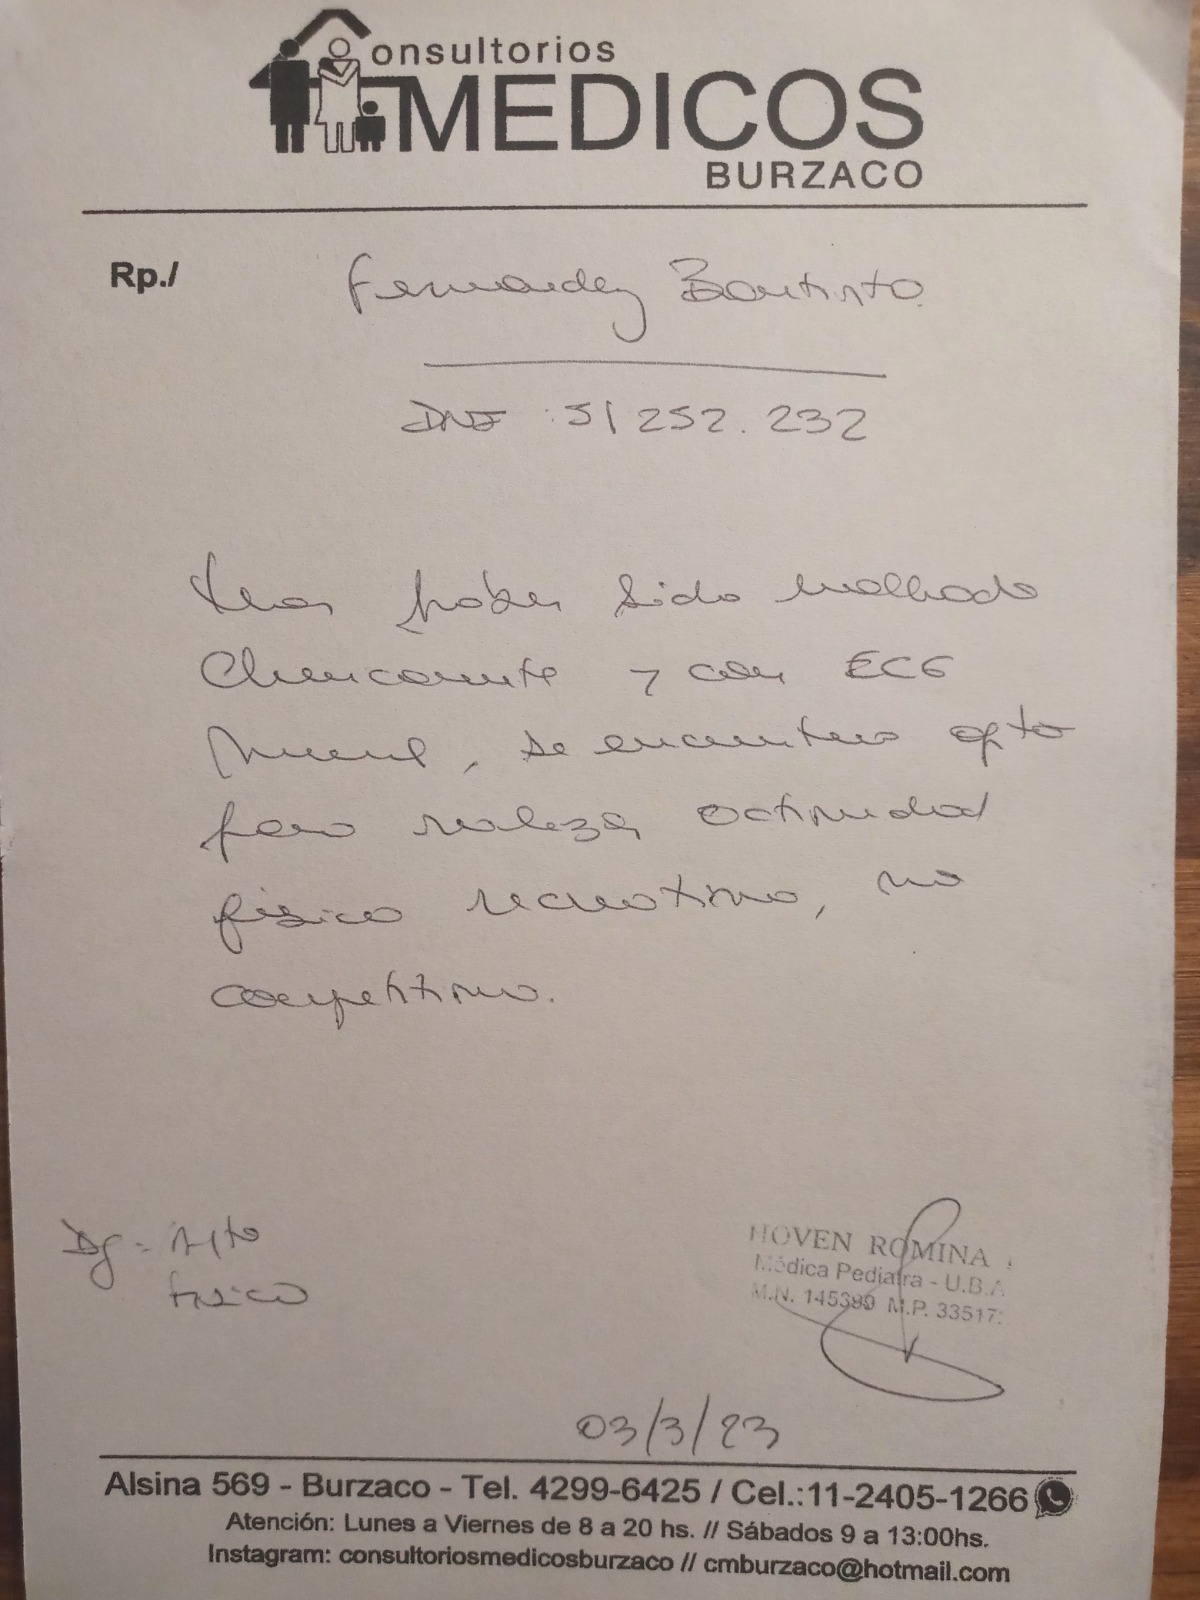 Consultorios
MEDICOS
BURZACO
Rp./
Fernandez Bautista
DNI : 51 252. 232
haber sido evaluado
Clinicamente y con ECG
normal, se encuentra apto
para realizar actividad
física recreativa, no
competitiva.
Dg = Apto
físico
HOVEN ROMINA
Médica Pediatra - U.B.A
M.N. 145389 M.P. 33517
03/3/23
Alsina 569 - Burzaco - Tel. 4299-6425 / Cel.:11-2405-1266
Atención: Lunes a Viernes de 8 a 20 hs. // Sábados 9 a 13:00hs.
Instagram: consultoriosmedicosburzaco // cmburzaco@hotmail.com